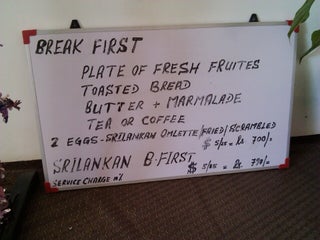 BREAK FIRST
PLATE OF FRESH FRUITES
TOASTED BREAD
BUTTER + MARMALADE
TEA OR COFFEE
2 EGGS - SRILANKAN OMLETTE/FRIED/SCRAMBLED
$ 5/25 = Rs. 700/=
SRILANKAN B-FIRST
$ 5/25 = Rs. 750/=
SERVICE CHARGE 10%